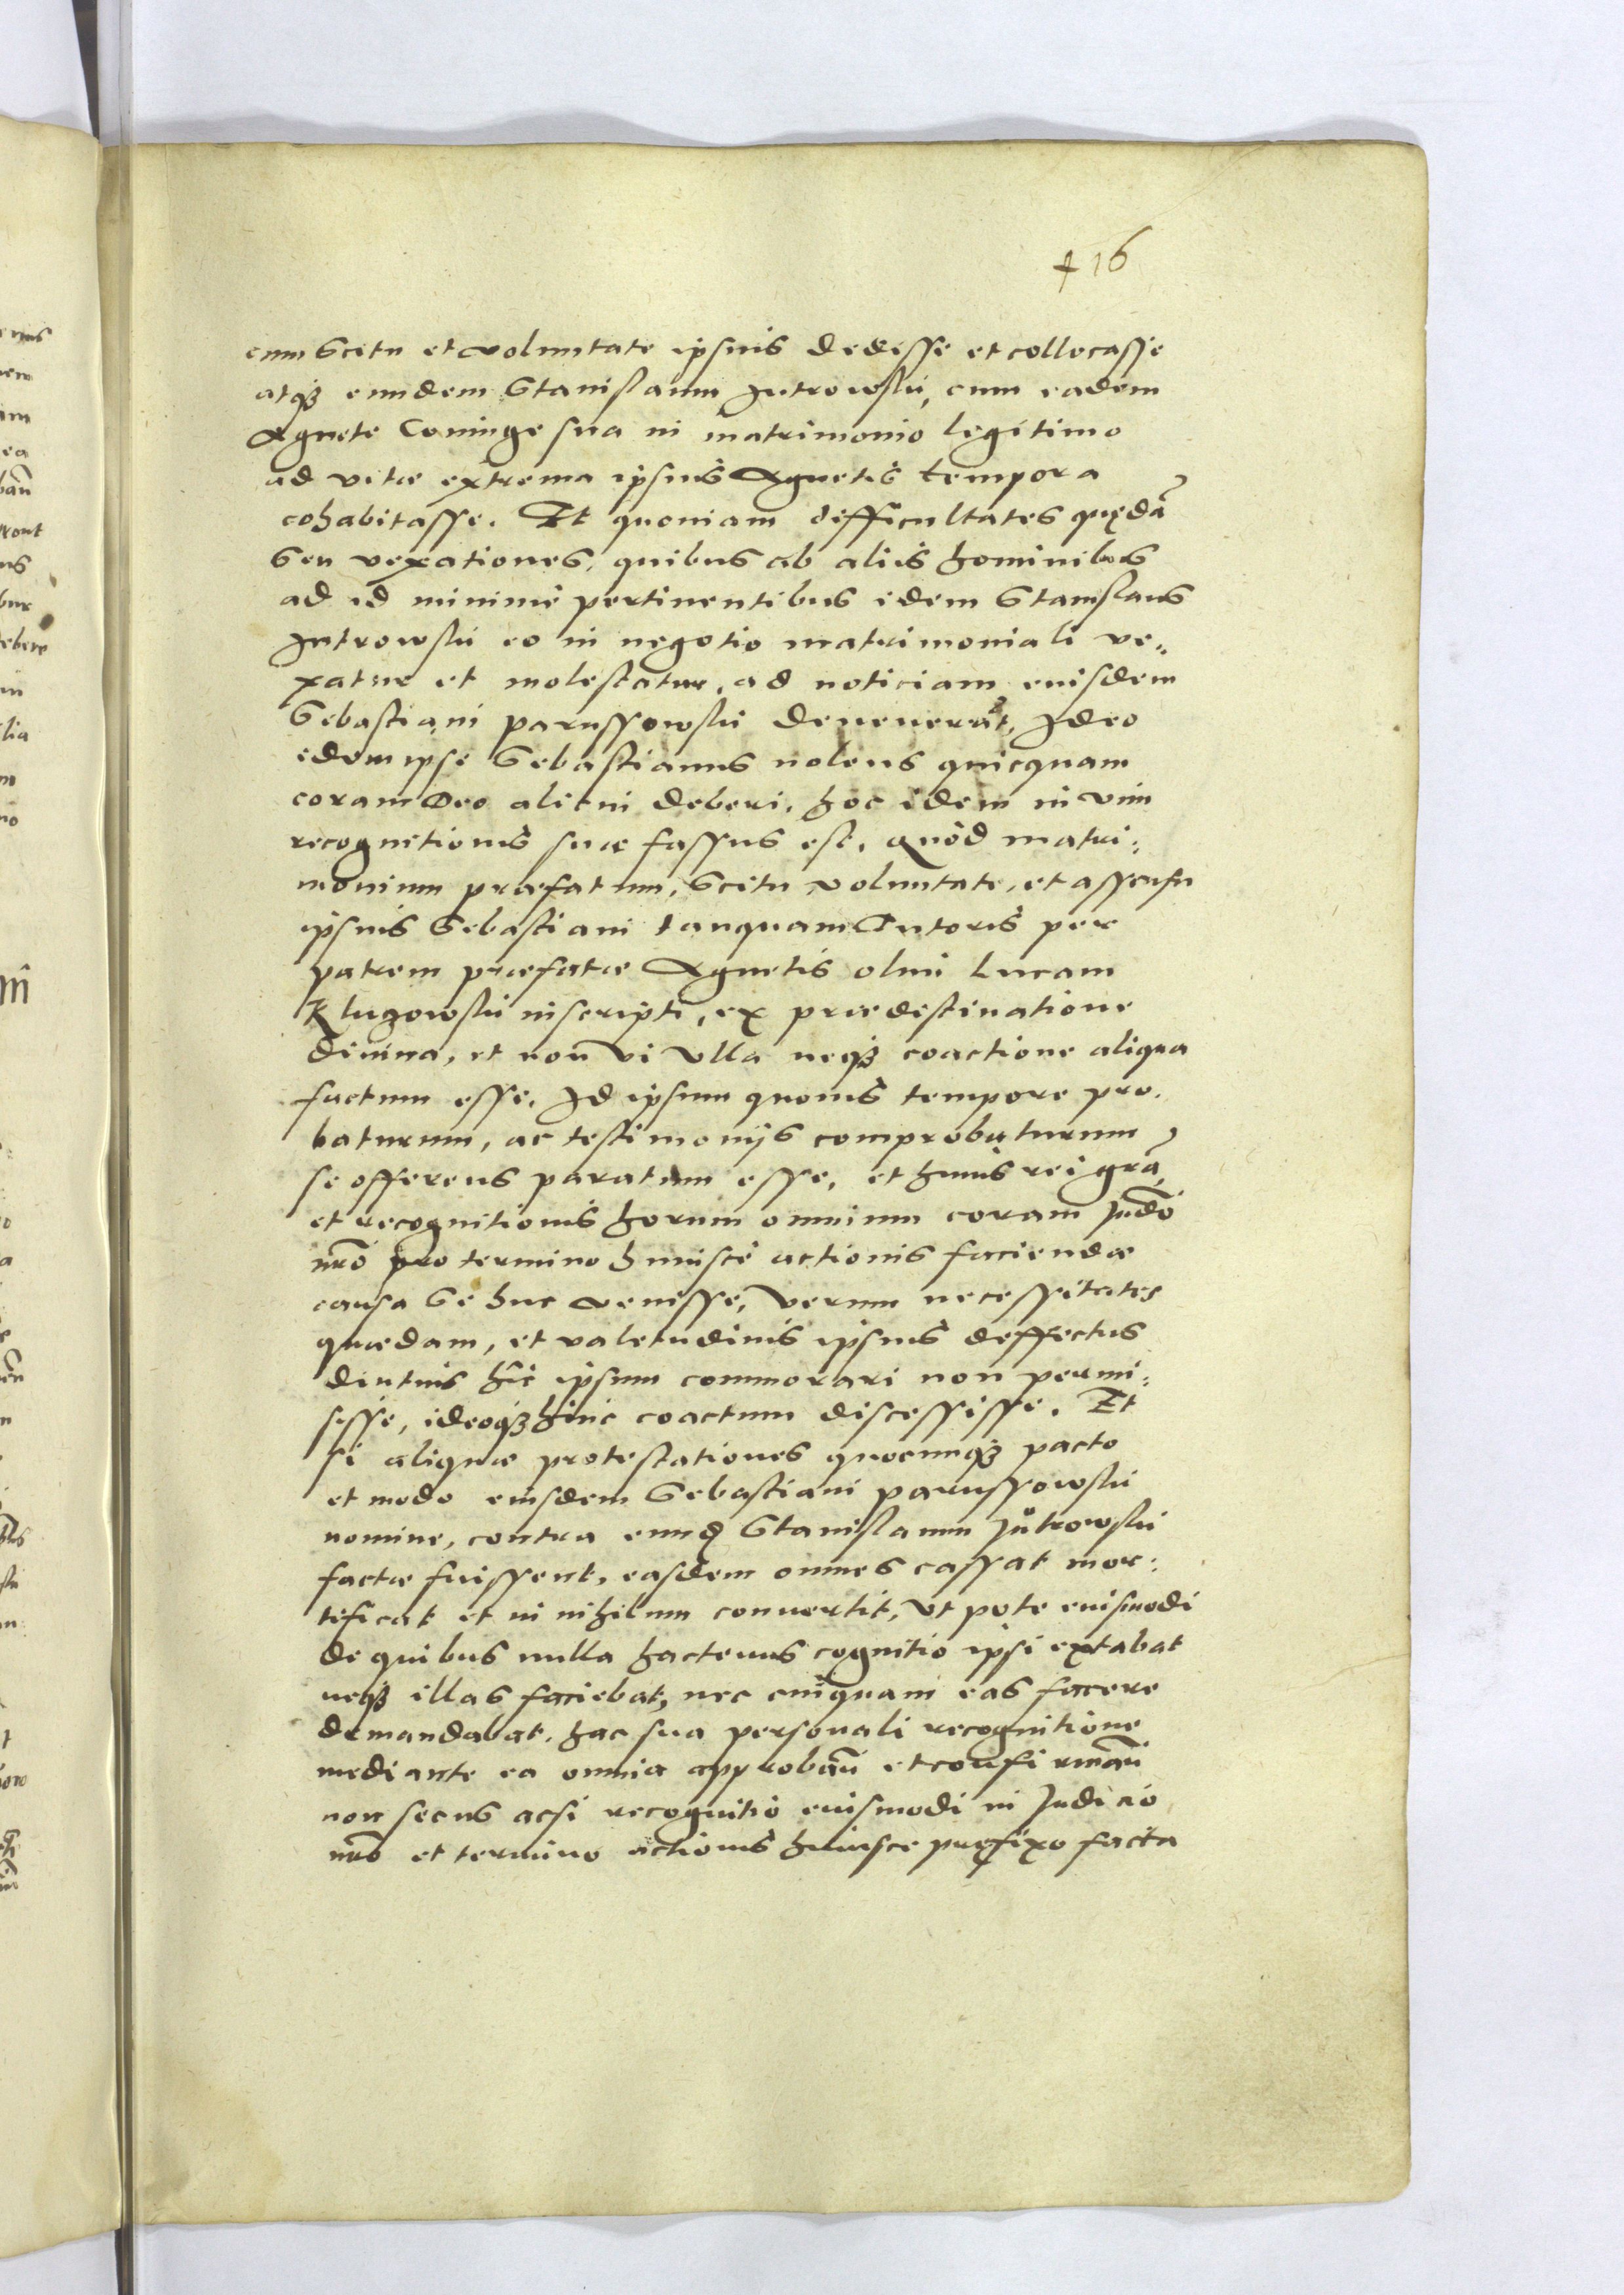 + 16
cum Scitu et voluntate ipsius dedisse et collocasse
atqȝ eundem Stanislaum Jutrowskii, cum eadem
Agnete Coniuge sua in matrimonio legitimo
ad vitæ extrema ipsius Agnetis tempora
cohabitasse. Et quoniam difficultates quędã
Seu vexationes, quibus ab aliis hominibus
ad id minimè pertinentibus idem Stanislaus
Jutrowskii eo in negotio matrimoniali ve:
xatur et molestatur, ad noticiam euisdem
Sebastiani parussowskii deuenerãt, Ideo
idem ipse Sebastianus nolens quicquam
coram Deo alicui deberi, hoc idem in vim
recognitionis suæ fassus est, quòd matri:
monium præfatum, Scitu voluntate, et assensu
ipsius Sebastiani tanquam Tutoris per
patrem præfatæ Agnetis olim Lucam
Klugowskii inscripti, ex prædestinatione
diuina, et non vi vlla neqȝ coactione aliqua
factum esse. Id ipsum quouis tempore pro:
baturum, ac testimonijs comprobaturum
se offerens paratum esse, et huius rei grã,
et recognitionis horum omnium coram Judõ
nrõ pro termino huiusce actionis faciendæ
causa Se huc venisse, verum necessitates
quædam, et valetudinis ipsius deffectus
diutius hîc ipsum commorari non permi:
sisse, ideoqȝ hinc coactum discessisse. Et
si aliquæ protestationes quocunqȝ pacto
et modo eiusdem Sebastiani parussowskii
nomine, contra eund Stanislaum Jutrowskii
factæ fuissent, easdem omnes cassat mor:
tificat et in nihilum conuertit, vt pote euismodi
de quibus nulla hactenus cognitio ipsi extabat
neqȝ illas faciebat, nec cuiquam eas facere
demandabat. hac sua personali recognitione
mediante ea omnia approbañ et confirmañ
non secus acsi recognitio euismodi in Judicio
nrõ et termino actionis huiusce prefixo facta